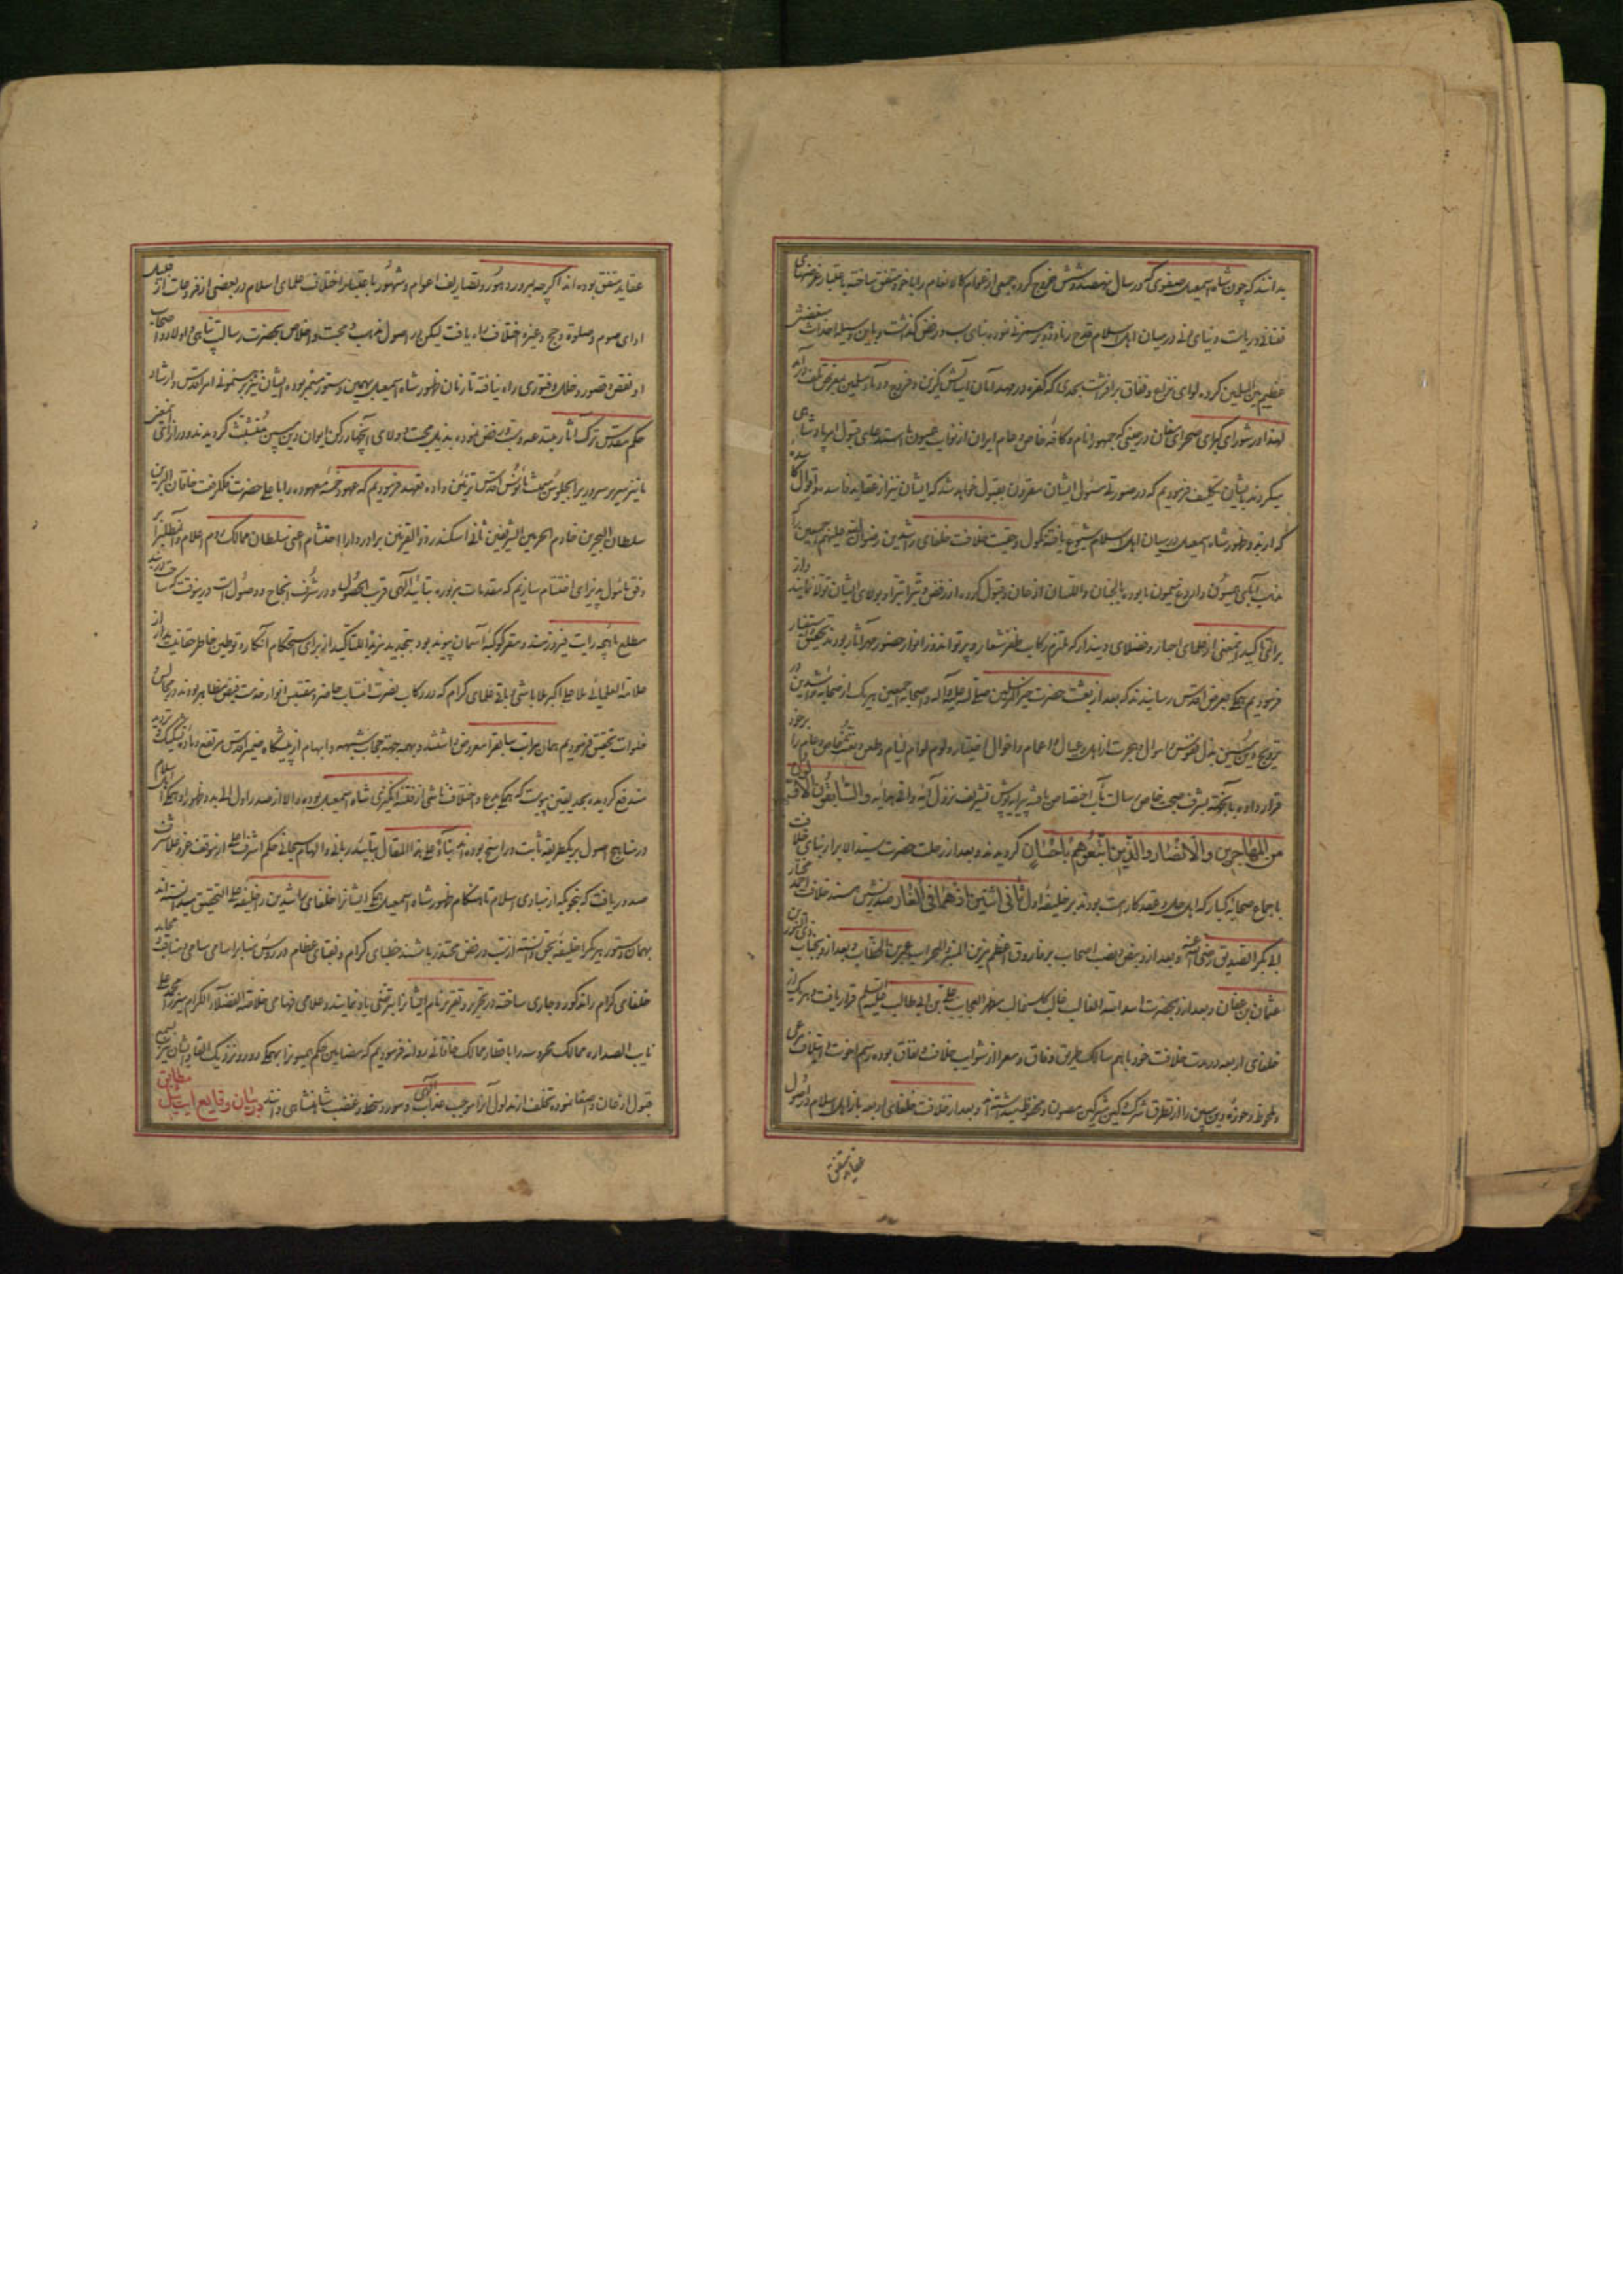 بدانند که چون شاه اسمعیل صفوی که در سال نهصد و شش خروج کرده جمعی از عوام کالانعام را با خود متفق ساخته باعتبار غرضهای
نفسانی و ریاست دنیای دنی در میان اهل اسلام قدح زناد و بر همزنی نموده بنای سب و رفض گذاشت و باین وسیله احداث
عظیم بین المسلمین کرده لوای نزاع و نفاق برافراشت بحدی که کفره در مهد امان آسایش گزین و فروج و دماء مسلمین بمعرض تلف درآمد
لهذا در شورای کبرای صحرای مغان در حینی که جمهور انام و کافه خاص و عام ایران از نواب همیون ما استدعای قبول امر پادشاهی
میکردند بایشان تکلیف فرمودیم که در صورتی مسئول ایشان مقرون بقبول خواهد شد که ایشان نیز از عقاید فاسده و اقوال کاسده
که از بدو ظهور شاه اسمعیل در میان اهل اسلام شیوع یافته نکول و بحقیت خلافت خلفای راشدین رضوان الله علیهم اجمعین که
مذهب آبای همیون و اروغ میمون ما بود بالجنان و اللسان اذعان و قبول کرده از رفض و تبرا تبرا و بولای ایشان تولا نمایند و از
برای تاکید و تیمنی از علمای اخیار و فضلای دیندار که ملتزم رکاب ظفر شعار و پرتو اندوز انوار حضور مهر آثار بودند تحقیق و استفسار
فرمودیم همگی بعرض اقدس رسانیدند که بعد از بعثت حضرت خیر المرسلین صلی الله علیه و آله و اصحابه اجمعین هر یک از صحابه راشدین در
ترویج دین مبین بذل نفوس و اموال و هجرت از اهل و عیال و اعمام و اخوال اختیار و لوم لوام لئام و طعن و تعنت خاص و عام را بر خود
قرار داده بآنجهت بشرف صحبت خاص رسالت مآب اختصاص یافته پیرایه پوش تشریف نزول آیه وافی هدایه و السابقون الاولون
من المهاجرین و الانصار و الذین اتبعوهم باحسان گردیدند و بعد از رحلت حضرت سید الابرار بنای خلافت
باجماع صحابه کبار که اهل حل و عقد کار امت بودند بر خلیفه اول ثانی اثنین اذ هما فی الغار صدر نشین مسند خلافت احمد مختار
ابی بکر الصدیق رضی الله عنه و بعد از و بنص و نصب اصحاب بر فاروق اعظم مزین المنبر و المحراب عمر بن الخطاب و بعد از و بجناب ذی النورین
عثمان بن عفان و بعد از و بحضرت اسد الله الغالب غالب کل غالب مظهر العجایب علی بن ابی طالب قرار یافت و هر یک از
خلفای اربعه در مدت خلافت خود با هم سالک طریق وفاق و معرا از شوایب خلاف و نفاق بوده رسم اخوت و ایتلاف مرعی
و ملحوظ و حوزه دین مبین را از تطرق شرک و کین مشرکین مصون و محفوظ میداشته اند و بعد از خلافت خلفای اربعه باز اهل اسلام در اصول
عقاید متفق
عقاید متفق بوده اند اگر چه بمرور دهور و تصاریف اعوام و شهور باعتبار اختلاف علمای اسلام در بعضی از فروعات از قبیل
ادای صوم و صلوة و حج و غیره اختلاف راه یافت لیکن در اصول مذهب و محبت و اخلاص بحضرت رسالت پناهی و اولاد و اصحاب
او نقص و قصور و خلل و فتوری راه نیافته تا زمان ظهور شاه اسمعیل بهمین دستور مستمر بوده ایشان نیز برهنمونی امر اقدس و ارشاد
حکم مقدس ترک آثار مبتدعه سب و رفض نموده بذیل محبت و ولای چهار رکن ایوان دین مبین متشبث گردیدند و در ازای آن معنی
ما نیز سریر سروری را بجلوس میمنت مانوس اقدس تزیین داده تعهد فرمودیم که عهود خمسه معهوده را باعلیحضرت فلکرفعت خاقان البرین
سلطان البحرین خادم الحرمین الشریفین ثانی اسکندر ذو القرنین برادر دارا احتشام اعنی سلطان ممالک روم اعلام و مطلب را بر
وفق مامول پذیرای اختتام سازیم که مقدمات مزبوره بتایید الهی قریب الحصول و در شرف انجاح و وصول است درینوقت که ساحت
مطلع ماهچه رایت فیروزمند و مقر کوکبه آسمان پیوند بود بتجدید مزیداً للتاکید از برای استحکام آنکار و توطین خاطر حقانیت مدار از
علامة العلمائی ملا علی اکبر ملا باشی و باقی علمای کرام که در رکاب نصرت انتساب حاضر و مقتبس انوار خدمت فیض مظاهر بودند در مجالس و
خلوات تحقیق فرمودیم همان مراتب سابقه را معروض داشتند و بهمه جهة حجاب شبهه و ابهام از پیشگاه ضمیر اقدس مرتفع و ماده تشکیک و تردید
مندفع گردیده بحد یقین پیوست که همگی بدع و اختلاف ناشی از فتنه انگیزی شاه اسمعیل بوده والا از صدر اول الی بدو ظهور او همگی اهل اسلام
در مناهج اصول بر یک طریقه ثابت و راسخ بوده اند بناءً علی هذا المقال بتایید ربانی و الهام سبحانی حکم اشرف اعلی از موقف عز و علا شرف
صدور یافت که بنحویکه از مبادی اسلام تا هنگام ظهور شاه اسمعیل همگی ایشانرا خلفای راشدین و خلیفه علی التحقیق میدانسته اند
بهمان دستور هر یک را خلیفه بحق دانسته از سب و رفض محترز باشند خطبای کرام و فقهای عظام در رؤس منابر اسامی سامی و مناقب
خلفای کرام را مذکور و جاری ساخته در تحریر و تقریر نام ایشانرا بترضی یاد نمایند و علامی فهامی خلاصة الفضلاء الکرام میرزا محمد علی
نایب الصداره ممالک محروسه را باقطار ممالک خاقانی روانه فرمودیم که مضامین حکم همیونرا بهمگی دور و نزدیک القا و ایشان نیز بسمع
قبول اذعان و اصغا نموده تخلف از مدلول آنرا موجب عذاب الهی و مورد سخط و غضب شاهنشاهی دانند در بیان وقایع ایت ئیل مطابق